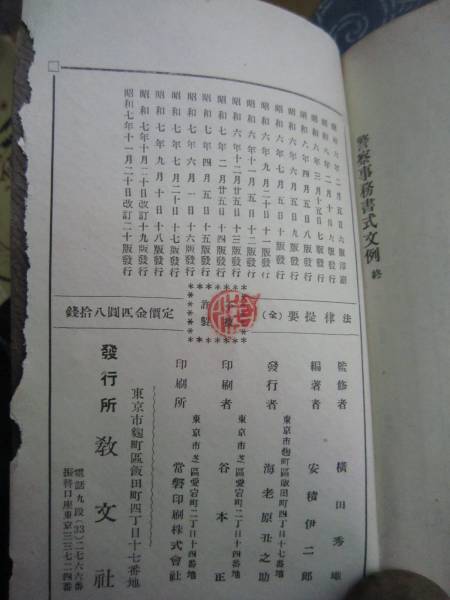 警察事務書式文例 終
昭和六年三月十五日七版發行
昭和六年四月五日八版發行
昭和六年六月五日九版發行
昭和六年七月五日十版發行
昭和六年九月二十日十一版發行
昭和六年十一月五日十二版發行
昭和六年十二月廿五日十三版發行
昭和七年二月廿五日十四版發行
昭和七年四月五日十五版發行
昭和七年六月一日十六版發行
昭和七年七月二十日十七版發行
昭和七年九月十日十八版發行
昭和七年十月二十日改訂十九版發行
昭和七年十一月二十日改訂二十版發行
法律提要(全)
定價金四圓八拾錢
監修者 橫田秀雄
編著者 安積伊二郎
東京市麴町區飯田町四丁目十七番地
發行者 海老原丑之助
東京市芝區愛宕町二丁目十四番地
印刷者 谷本正
東京市芝區愛宕町二丁目十四番地
印刷所 常磐印刷株式會社
東京市麴町區飯田町四丁目十七番地
發行所 敎文社
電話九段(33)二七六六番
振替口座東京三三七二四番